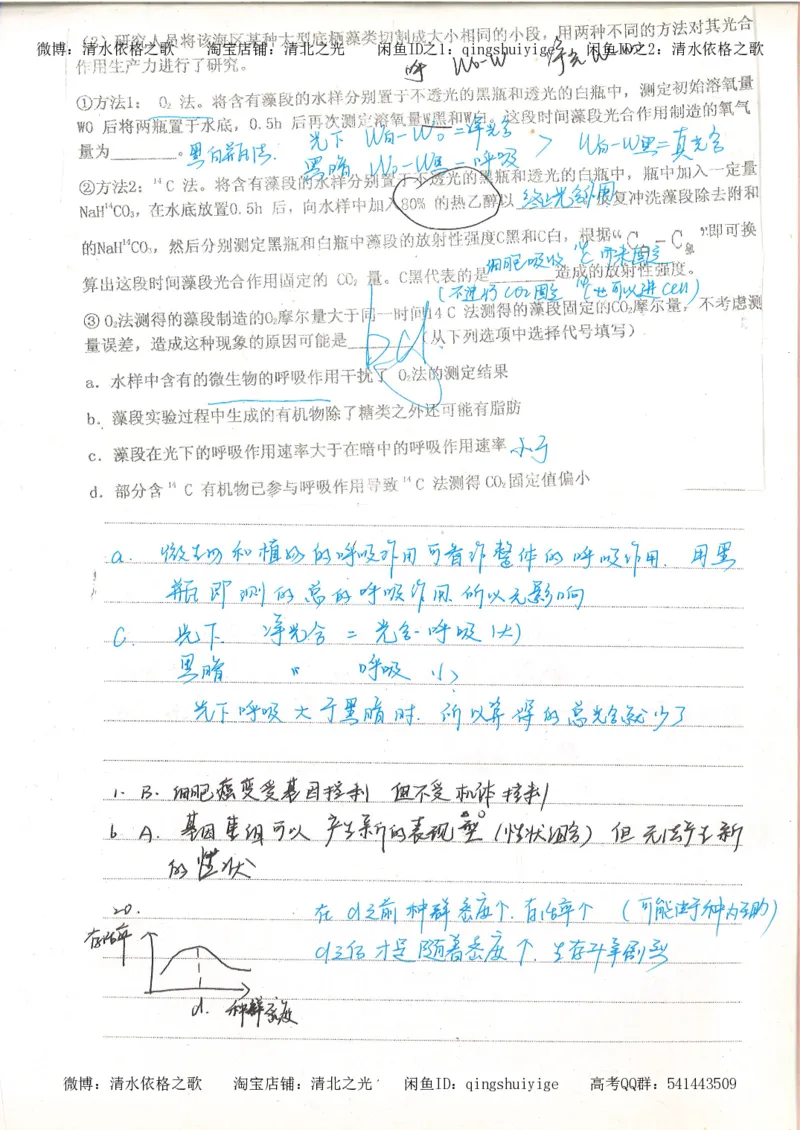 (2) 研究人员将该海区某种大型底栖藻类切割成大小相同的小段，用两种不同的方法对其光合
微博：清水依格之歌 淘宝店铺：清北之光 闲鱼ID之1：qingshuiyige 闲鱼ID之2：清水依格之歌
作用生产力进行了研究。
呼 W0-W
①方法1： O₂ 法。将含有藻段的水样分别置于不透光的黑瓶和透光的白瓶中，测定初始溶氧量
W0 后将两瓶置于水底，0.5h 后再次测定溶氧量W黑和W白。这段时间藻段光合作用制造的氧气
量为________。
黑白瓶法. 光下 W白-W0=净光合
黑暗 W0-W黑=呼吸
> W白-W黑=真光合
②方法2：¹⁴C 法。将含有藻段的水样分别置于不透光的黑瓶和透光的白瓶中，瓶中加入一定量
NaH¹⁴CO₃，在水底放置0.5h 后，向水样中加入80% 的热乙醇以 终止光合作用 反复冲洗藻段除去附和
的NaH¹⁴CO₃，然后分别测定黑瓶和白瓶中藻段的放射性强度C黑和C白，根据“C白-C黑”即可换
细胞吸收 ¹⁴C 而未固定
算出这段时间藻段光合作用固定的 CO₂ 量。C黑代表的是________造成的放射性强度。
(不进行CO2固定 ¹⁴C也可以进cell)
③ O₂法测得的藻段制造的O₂摩尔量大于同一时间14 C 法测得的藻段固定的CO₂摩尔量，不考虑测
量误差，造成这种现象的原因可能是 bd (从下列选项中选择代号填写)
a．水样中含有的微生物的呼吸作用干扰了 O₂法的测定结果
b．藻段实验过程中生成的有机物除了糖类之外还可能有脂肪
c．藻段在光下的呼吸作用速率大于在暗中的呼吸作用速率 小于
d．部分含 ¹⁴ C 有机物已参与呼吸作用导致 ¹⁴ C 法测得 CO₂固定值偏小
a. 微生物和植物的呼吸作用可看作整体的呼吸作用. 用黑
瓶即测的总的呼吸作用.所以无影响
C. 光下. 净光合 = 光合-呼吸 (大)
黑暗 〃 呼吸 小
光下呼吸大于黑暗时. 所以算得的总光合就少了
1. B. 细胞癌变受基因控制 但不受机体控制
6 A. 基因重组可以产生新的表现型 (性状组合) 但无法产生新
的性状
20. 在d之前种群密度↑.存活率↑ (可能由于种内互助)
存活率
d之后才是随着密度↑.生存斗争剧烈
d. 种群密度
微博：清水依格之歌 淘宝店铺：清北之光 闲鱼ID：qingshuiyige 高考QQ群：541443509